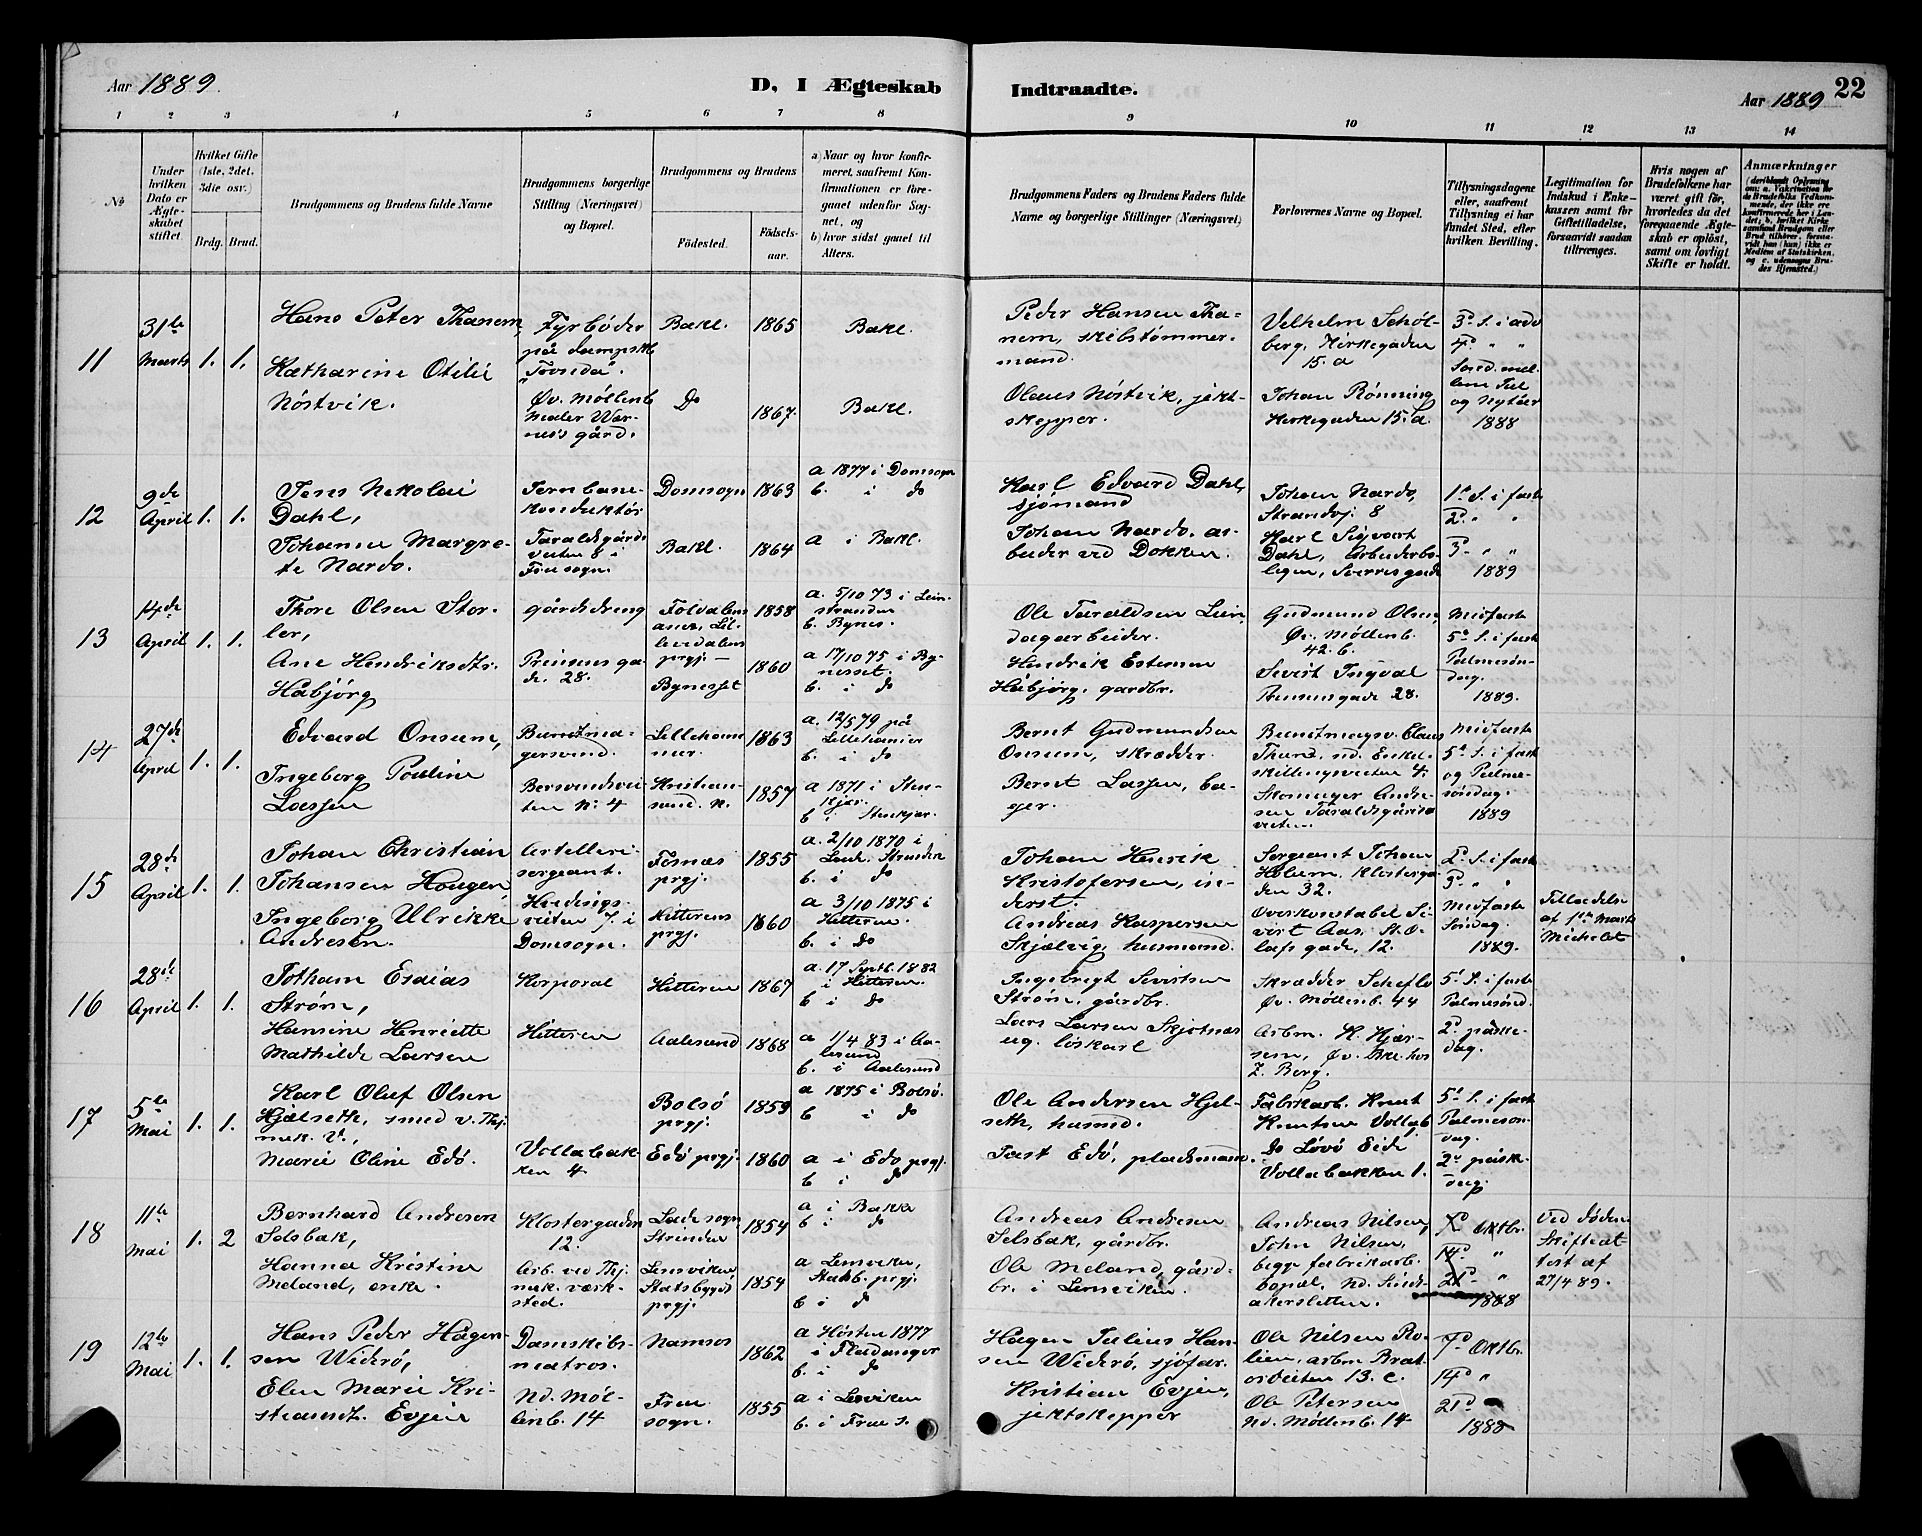 Aar 1889.
D. I Ægteskab
Indtraadte.
Aar 1889
22
1 2 3 4 5 6 7 8 9 10 11 12 13 14
No
Under hvilken Dato er Ægteskabet stiftet.
Hvilket Gifte (1ste, 2det, 3die osv.)
Brdg. Brud.
Brudgommens og Brudens fulde Navne
Brudgommens borgerlige Stilling (Næringsvei) og Bopæl.
Brudgommens og Brudens
Fødested.
Fødselsaar.
a) Naar og hvor konfirmeret, saafremt Konfirmationen er foregaaet udenfor Sognet, og
b) hvor sidst gaaet til Alters.
Brudgommens Faders og Brudens Faders fulde Navne og borgerlige Stillinger (Næringsvei)
Forlovernes Navne og Bopæl.
Tillysningsdagene eller, saafremt Tillysning ei har fundet Sted, efter hvilken Bevilling.
Legitimation for Indskud i Enkekassen samt for Giftetilladelse, forsaavidt saadan tiltrænges.
Hvis nogen af Brudefolkene har været gift før, hvorledes da det foregaaende Ægteskab er opløst, samt om lovligt Skifte er holdt.
Anmærkninger
11
31te Marts
1. 1.
Hans Peter Thanem,
Katharine Otilie
Nöstvik.
Fyrböder
på dampsk.
Öv. Möllenb
Maler Wer-
nes's gård.
Bakl.
Do
1865
1867.
Bakl.
Bakl.
Peder Hansen Tha-
nem, skibstömmer-
mand.
Olaus Nöstvik, jekt-
skepper.
Velhelm Schöl-
berg, Kirkegaden
15. a
Johan Rönning
Kirkegaden 15. a.
3d S. i adv
4d " "
Sönd. mel-
lem Jul
og Nytår
1888
12
9de April
1. 1.
Jens Nikolai
Dahl,
Johanna Margre-
te Nardo.
Jernbane-
konduktör
Taraldsgårds
veiten 8 i
Frue sogn.
Domsogn
Bakl.
1863
1864
a 1877 i Domsogn
b. i do
a i Bakl.
Karl Edvard Dahl,
sjömand
Johan Nardo, ar-
beider ved Dokken.
Johan Nardo,
Strandvj. 8
Karl Sigvart
Dahl, Arbeiderbo-
ligen, Sverresgade
1ste S. i faste
2d. " "
3- " "
1889
13
14de April
1. 1.
Thore Olsen Stor-
ler,
Ane Hendriksdtr.
Håbjörg
gårdsdreng
Prinsensga-
de. 28.
Foldalens
prgj. —
Bynesset
1858
1860
a. 5/10 73 i Lein-
stranden
b. Bynes.
a 17/10 75 i By-
nesset.
b. i do
Ole Taraldsen Lein
dagarbeider.
Hendrik Estensen
Håbjörg, gardbr.
Gudmund Olsen
Öv. Möllenb.
42. b.
Sivert Ingval
Prinsensgade 28.
Midfaste
5te S. i faste
Palmesön-
dag.
1889.
14
27de April
1. 1.
Edvard Onsum,
Ingeborg Pouline
Lassen
Buntma-
gersvend.
Bersvendsvei-
ten No 4
Lilleham
mer.
Kristian-
sund. N.
1863
1857
a. 12/5 79 på
Lillehamer
b. i do
a 1871 i Sten-
kjær.
b i Stenkjær.
Bernt Gudmundsen
Onsum, skrædder.
Bernt Lassen, ba-
ger.
Buntmagersv. Claus
Thune, nd. Enkel-
skillingsveiten 4.
Skomager Andre-
sen Taraldsgårds-
veiten.
Midfaste
5te S. i faste
og Palme-
söndag.
1889
15
28de April
1. 1.
Johan Christian
Johansen Hougen,
Ingeborg Ulrikke
Andresen.
Artilleri
sergeant.
Hvedings-
veiten 7. i
Domsogn.
Fosnæs
prgj.
Hitterens
prgj.
1855
1860
a. 2/10 1870 i
Lade, Strinden
b. i do
a 3/10 1875 i
Hitteren.
b. i Do
Johan Henrik
Kristofersen, in-
derst.
Andreas Kaspersen
Skjælvig, husmand.
Sergeant Johan
Holum, Klosterga-
den 32.
Overkonstabel Si-
vert Aas. St. O-
lafs gade, 12.
2d S. i faste
3- " "
Midfaste
Söndag.
1889.
Tilladelse
af 1ste Marts
Michelet
16
28de April
1. 1.
Johan Esaias
Ström,
Hansine Henriette
Mathilde Larsen
Korporal
Hitteren
Hitteren
Aalesund
1867
1868
a. 17 Septb. 1882
i Hitteren.
b i do
a 1/4 83 i Aa-
lesund
b. i Aalesund
Ingebrigt Sivertsen
Ström, gårdbr.
Lars Larsen Skjotnæs
ug. löskarl
Skrædder Scheflo
Öv. Möllenb. 44
Arbm. K. Kjær-
sem, Öv. Bkl. hos
Z. Berg.
5te S. i faste
Palmesönd.
2d. påske-
dag.
17
5te Mai
1. 1.
Karl Oluf Olsen
Hjælseth, smed v. Thj.
mek. V.,
Marie Oline Edö.
Vollabak-
ken 4.
Bolsö
prgj.
Edö prgj.
1859
1860
a 1875 i Bolsö.
b i do
a i Edö prgj.
b i do
Ole Andersen Hjel-
seth, husmd.
Jast Edö, pladsmann.
Fabrikarb. Knut
Knutsen Vollab
Do Lövö Eide
Vollabakken 1.
5te S. i faste
Palmesön-
dag.
2d. påske-
dag.
18
11te Mai
1. 2
Bernhard Andresen
Selsbak,
Hanna Kristine
Meland, enke.
Klostergaden
12.
Arb. ved Thj.
mek. værk-
sted.
Lade sogn
Strinden
Lensviken
Statsbygds
prgj.
1854
1854
a i Bakke
b i do
a Lensviken,
Statsb. prgj.
b i do
Andreas Andresen
Selsbak, gårdbr.
Ole Meland, gård-
br. i Lensviken.
Andreas Nilsen,
John Nilsen,
begge fabrikarb.
bopæl. Nd. Sönd-
akersletten.
7d Oktbr.
14d "
21d- "
1888
Ved döden
Skifteat
test af
27/4 89.
19
12te Mai
1. 1.
Hans Peder Hågen-
sen Viderö,
Elen Marie Kri-
stiansdt. Evjen
Damskibs-
matros.
Nd. Möl-
lenb. 14
Namsos
Frue
sogn.
1862
1855
a Hösten 1877
i Fladanger
b. i do
a i Lensviken
b. i Frue S.
Hågen Julius Han-
sen Viderö, sjöfar.
Kristian Evjen,
jektskepper
Ole Nilsen Ro-
lien, arbm Brat-
örveiten 13. c.
Ole Petersen
Nd. Möllenb. 14
7d- Oktbr.
14d "
21d
1888